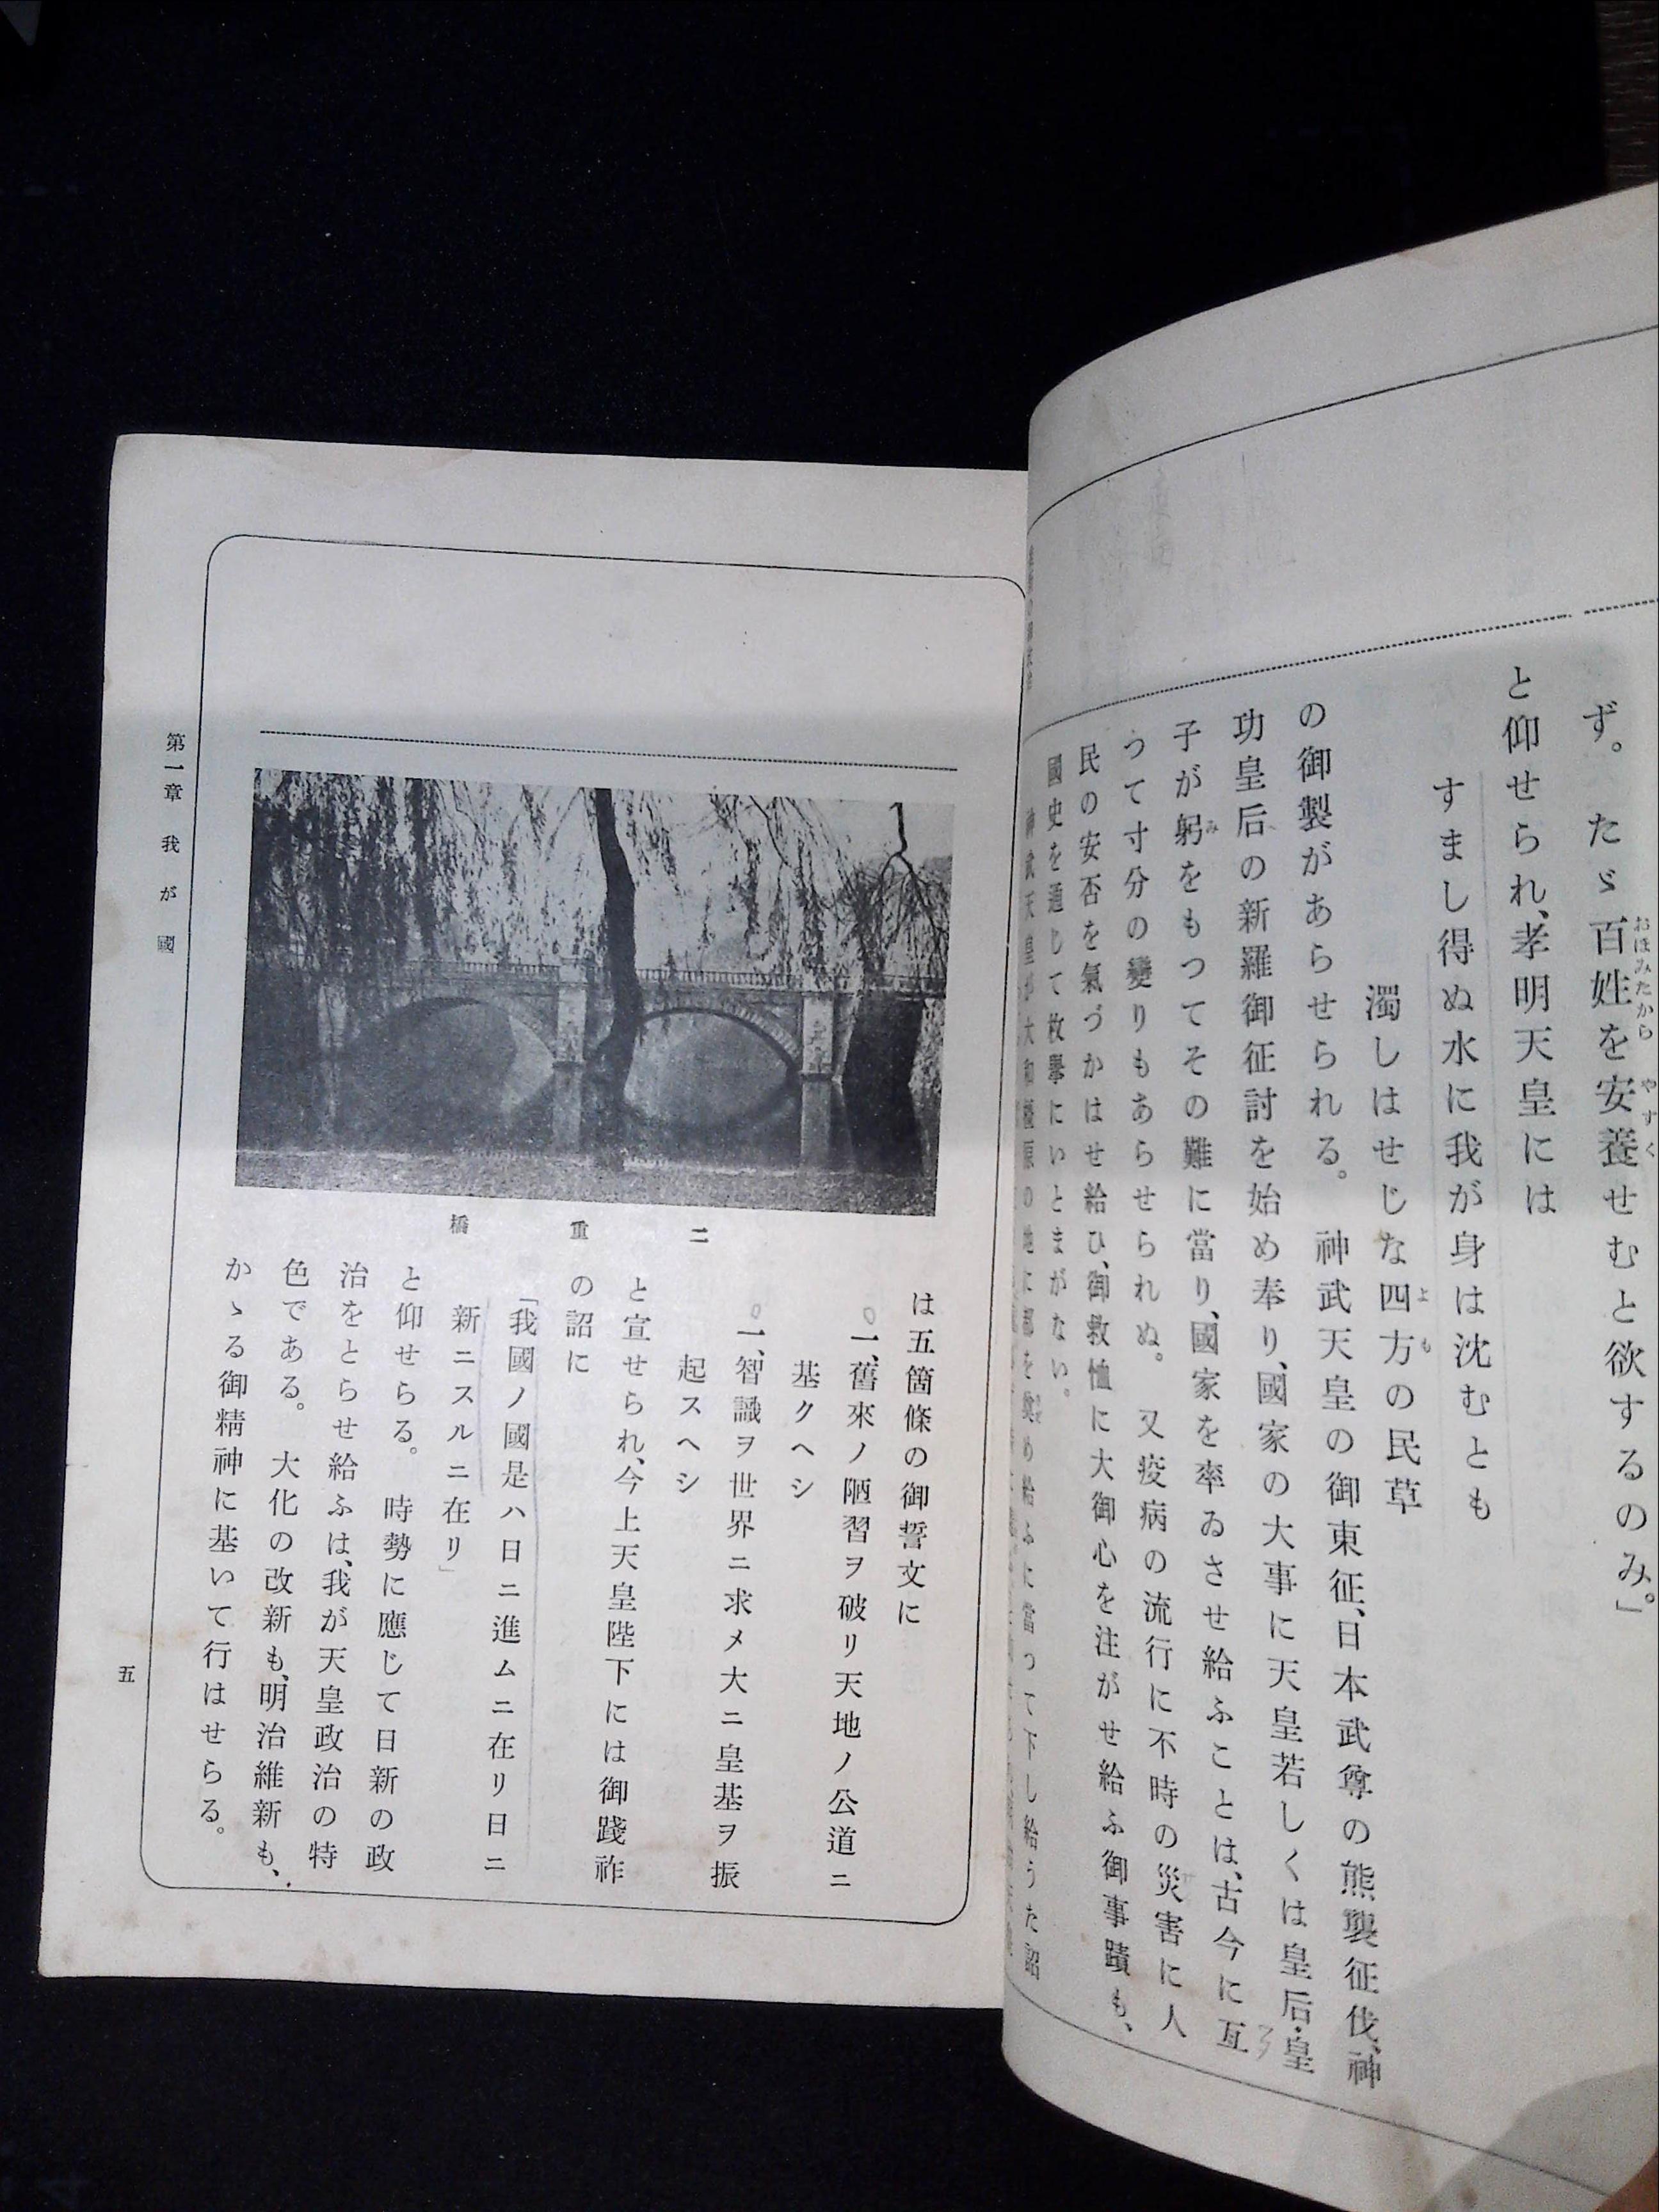 ず。たゞ百姓を安養せむと欲するのみ。」
おほみたから
やすく
と仰せられ、孝明天皇には
すまし得ぬ水に我が身は沈むとも
濁しはせじな四方の民草
よも
の御製があらせられる。神武天皇の御東征、日本武尊の熊襲征伐、神
功皇后の新羅御征討を始め奉り、國家の大事に天皇若しくは皇后・皇
子が躬をもつてその難に當り、國家を率ゐさせ給ふことは、古今に亙
み
つて寸分の變りもあらせられぬ。又疫病の流行に不時の災害に人
民の安否を氣づかはせ給ひ、御救恤に大御心を注がせ給ふ御事蹟も、
國史を通じて枚擧にいとまがない。
神武天皇が大和橿原の地に都を奠め給ふに當つて下し給うた詔
は五箇條の御誓文に
一、舊來ノ陋習ヲ破リ天地ノ公道ニ
基クヘシ
一、智識ヲ世界ニ求メ大ニ皇基ヲ振
起スヘシ
と宣せられ、今上天皇陛下には御踐祚
の詔に
「我國ノ國是ハ日ニ進ムニ在リ日ニ
新ニスルニ在リ」
と仰せらる。時勢に應じて日新の政
治をとらせ給ふは、我が天皇政治の特
色である。大化の改新も、明治維新も、
かゝる御精神に基いて行はせらる。
二重橋
第一章 我が國
五